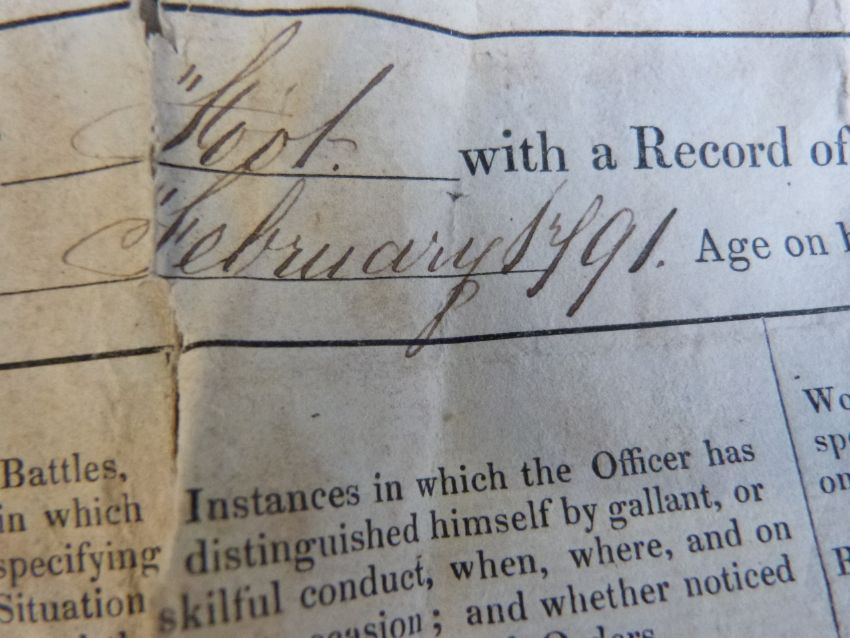 Foot. with a Record of
February 1791. Age on
Battles,
in which
specifying
Situation
Instances in which the Officer has
distinguished himself by gallant, or
skilful conduct, when, where, and on
occasion; and whether noticed
Orders